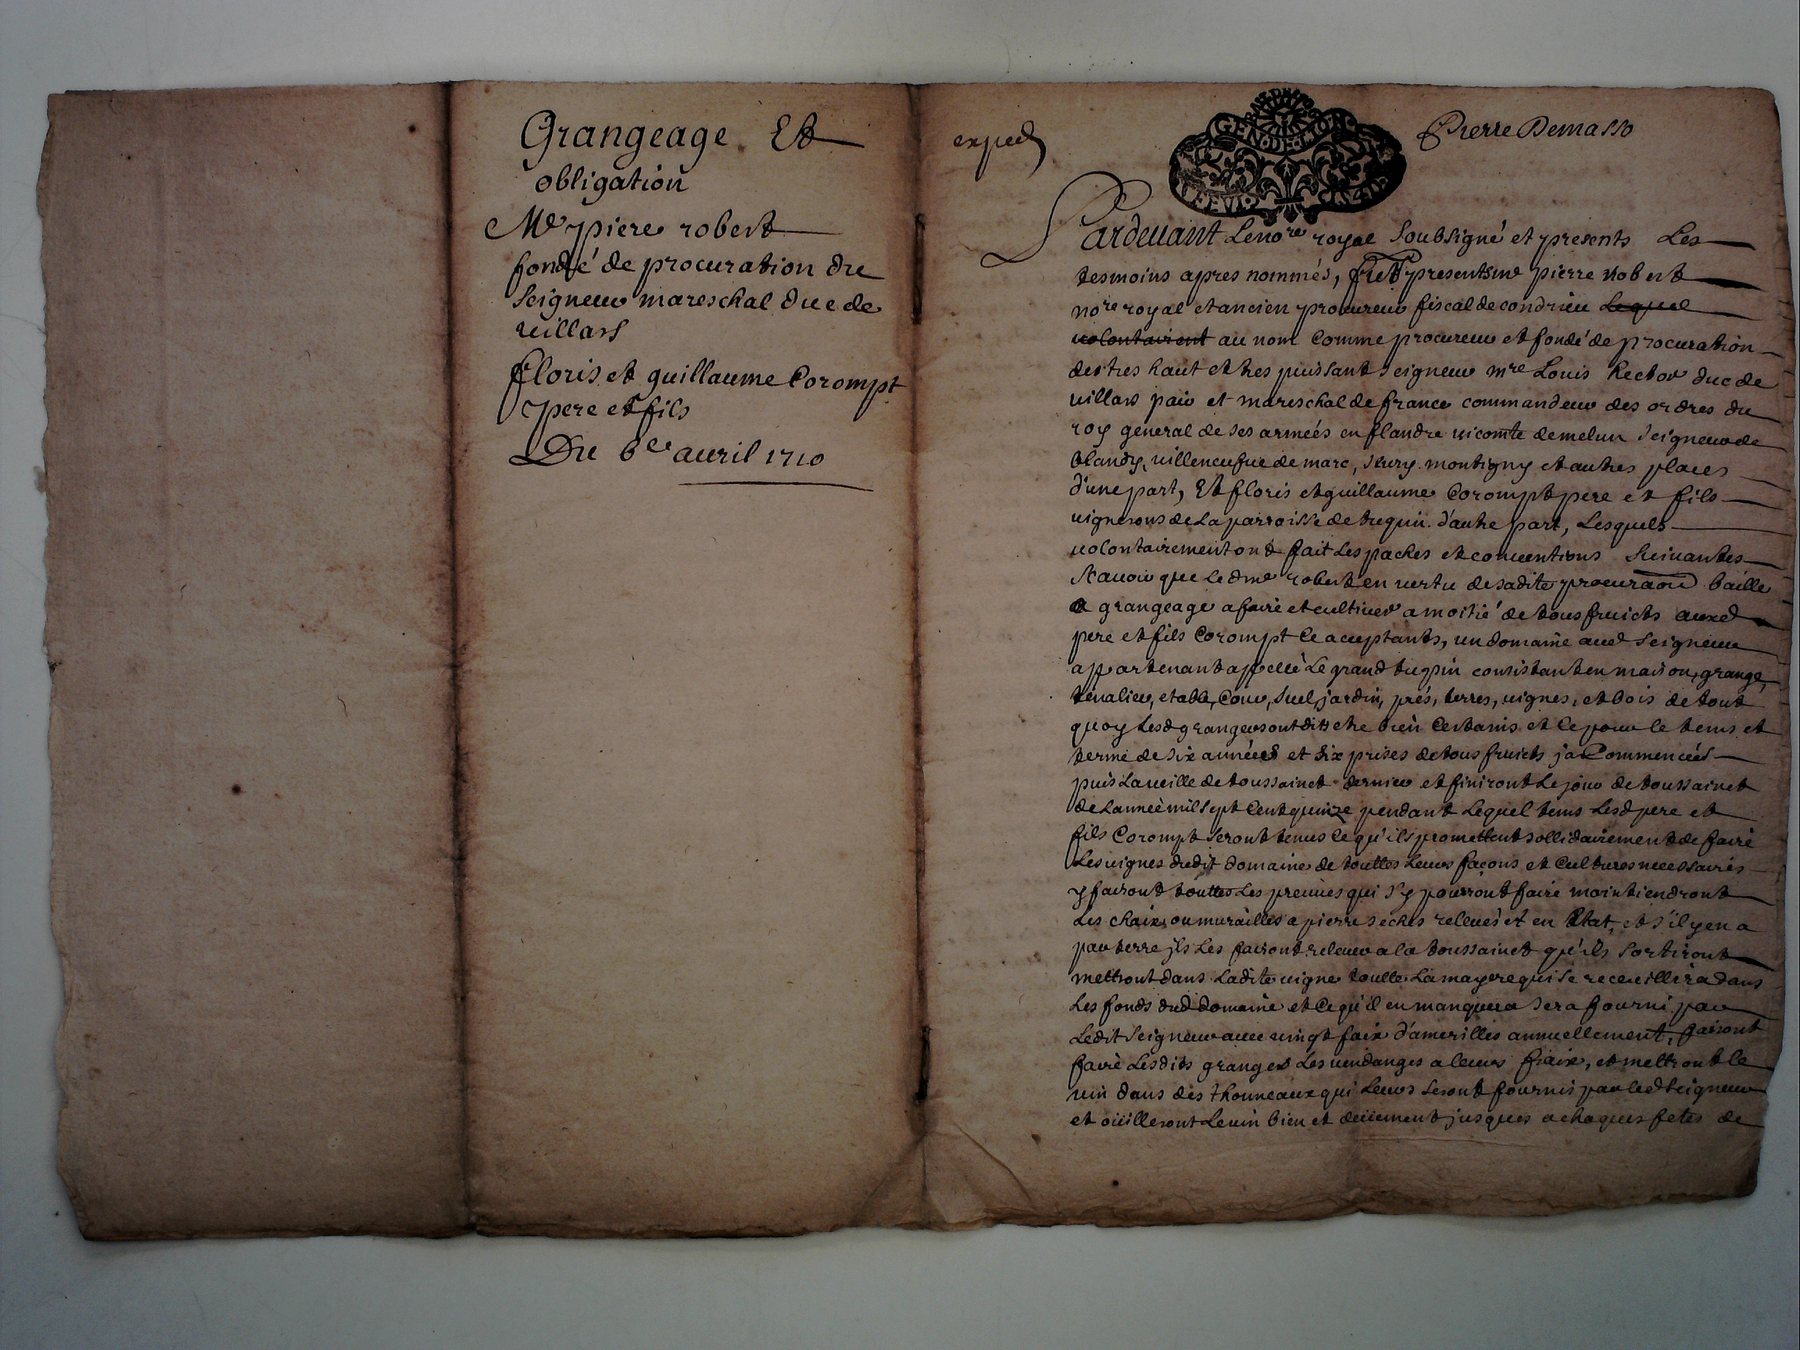 Grangeage Et
obligation
Me piere robert
fondé de procuration du
seigneur mareschal duc de
villars
floris et guillaume Corompt
pere et fils
Du 6e auril 1710
exped
GEN DE LYON
Pierre Demasso
Pardeuant Le nore royal soubsigné et presents Les
tesmoins apres nommés, fut present me pierre Robert
nore royal et ancien procureur fiscal de condrieu Lequel
volontairemt au nom Comme procureur et fondé de procuration
de tres haut et tres puissant seigneur mre Louis hector duc de
villars pair et mareschal de france commandeur des ordres du
roy general de ses armeés en flandre vicomte de melun seigneur de
blandy, villeneufue de marc, montigny et autres places
d'une part, Et floris et guillaume Corompt pere et fils
vignerons de La parroisse de tupin d'autre part, Lesquels
volontairement ont fait Les paches et conuentions suiuantes
scauoir que Led me robert en vertu de sadite procuraon baille
a grangeage a faire et cultiuer a moitié de tous fruicts auxd
pere et fils Corompt Ce acceptants, un domaine aud seigneur
appartenant appellé Le grand tuppin consistant en maison, grange,
tenalier, etable, Cour, suel, jardin, prés, terres, vignes, et bois de tout
quoy Lesd grangers ont dit etre bien Certains et Ce pour le tems et
terme de six anneés et six prises de tous fruicts ja Commenceés
puis La veille de toussainct dernier et finiront Le jour de toussainct
de L'anneé mil sept Cent quinze pendant Lequel tems Lesd pere et
fils Corompt seront tenus Ce qu'ils promettent sollidairement de faire
Les vignes dudit domaine de touttes Leurs façons et Cultures necessaires
y fairont touttes Les preuues qui s'y pourront faire maintiendront
Les chaix ou murailles a pierre seches releueés et en Etat, et s'il y en a
par terre jls Les fairont releuer a la toussainct qu'ils sortiront
mettront dans Ladite vigne toutte La mayere qui se receuillira dans
Les fonds dud domaine et Ce qu'il en manquera sera fourni par
Ledit seigneur auec vingt faix d'amerilles annuellement, fairont
faire Lesdits grangers Les vendanges a leurs fraix, et mettront le
vin dans des thonneaux qui Leurs seront fournis par led seigneur
et ouïlleront Le vin bien et deüement jusques a chaques fetes de